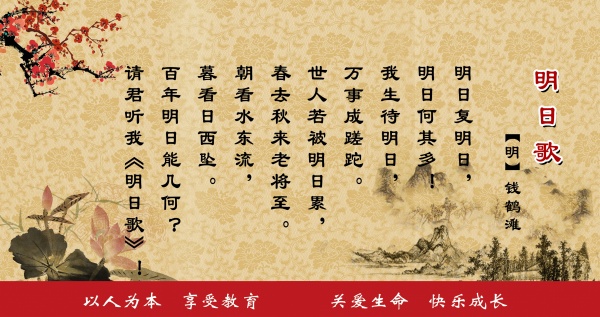 明日歌
【明】钱鹤滩
明日复明日，
明日何其多！
我生待明日，
万事成蹉跎。
世人若被明日累，
春去秋来老将至。
朝看水东流，
暮看日西坠。
百年明日能几何？
请君听我《明日歌》！
以人为本 享受教育 关爱生命 快乐成长